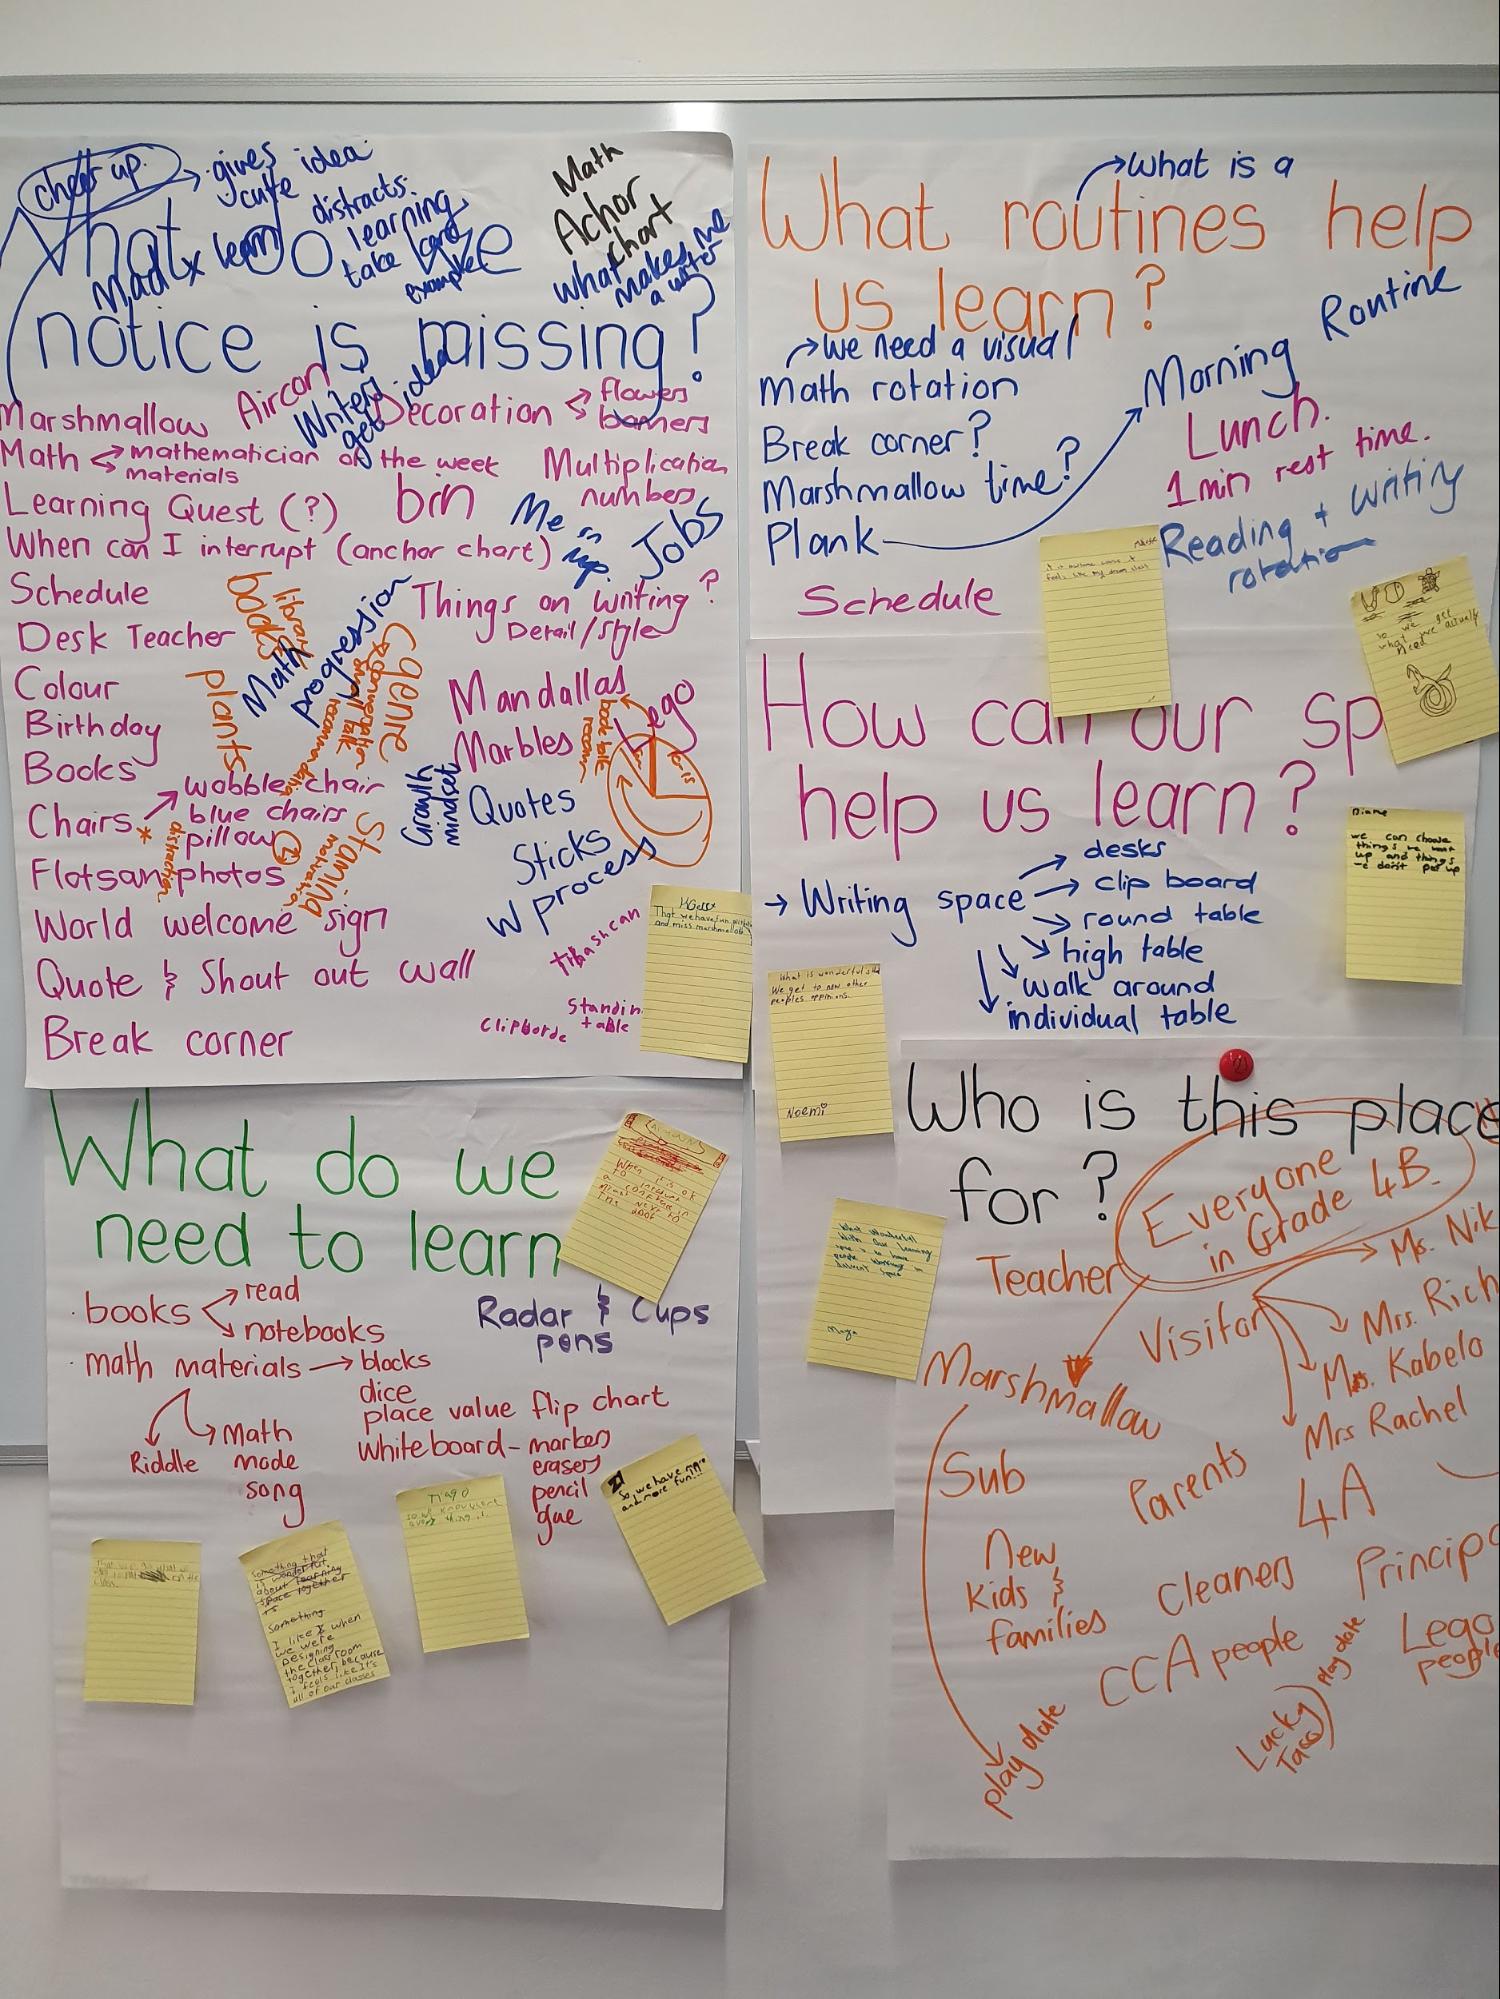 cheer up.
gives
cute idea.
What Do We
notice is missing?
Mad x learn
distracts.
learning
take care
example
Math
Achor
chart
what
makes me
a writer
Aircon
Writers
get idea
Marshmallow
Decoration
flowers
banners
Math
mathematician of the week
materials
Multiplication
numbers
Learning Quest (?)
bin
Me in
Jobs
When can I interrupt (anchor chart)
Schedule
books
library
Things on writing?
Detail/style
Desk Teacher
Math progression
genre
conversation
Colour
plants
Mandallas
Lego
Birthday
Marbles
book talk
Books
Growth
mindset
Chairs
wobble chair
blue chairs
pillow
distraction
stamina
motivation
Quotes
Sticks
W process
Flotsam photos
World welcome sign
Quote & Shout out wall
trashcan
Standin
table
Clipborde
Break corner
That we have fun
and miss marshmallow
What routines help
us learn?
What is a
we need a visual
Math rotation
Break corner?
Marshmallow time?
Plank
Morning Routine
Lunch.
1min rest time.
Reading + writing
rotation
Schedule
feels like my dream class
so we get
what we actually
need
How can our sp
help us learn?
Writing space
desks
clip board
round table
high table
walk around
individual table
Diane
we can choose
things we want
up and things
we don't put up
What is wonderful is that
We get to now other
peoples oppinions.
Noemi
What do we
need to learn
books
read
notebooks
Radar & Cups
pens
math materials
blocks
dice
place value flip chart
whiteboard - markers
erasers
pencil
glue
Riddle
Math
made
song
When it is ok
to
a
Tiago
So we have more
and more fun!!!
Something that
is wonderful
about learning
space together
is
Something
I like when
we were
designing
the classroom
together, because
i feels like it's
all of our classes
Who is this place
for?
Everyone
in Grade 4B.
Teacher
Visitor
Ms. Nik
Mrs. Rich
Ms. Kabelo
Mrs Rachel
Marshmallow
Sub
Parents
4A
New
Kids &
families
Cleaners
Princip
CCA people
Lego
people
play date
Lucky
Taco
play date
What wonderful
with our learning
space is to have
people working in
different space
Maya